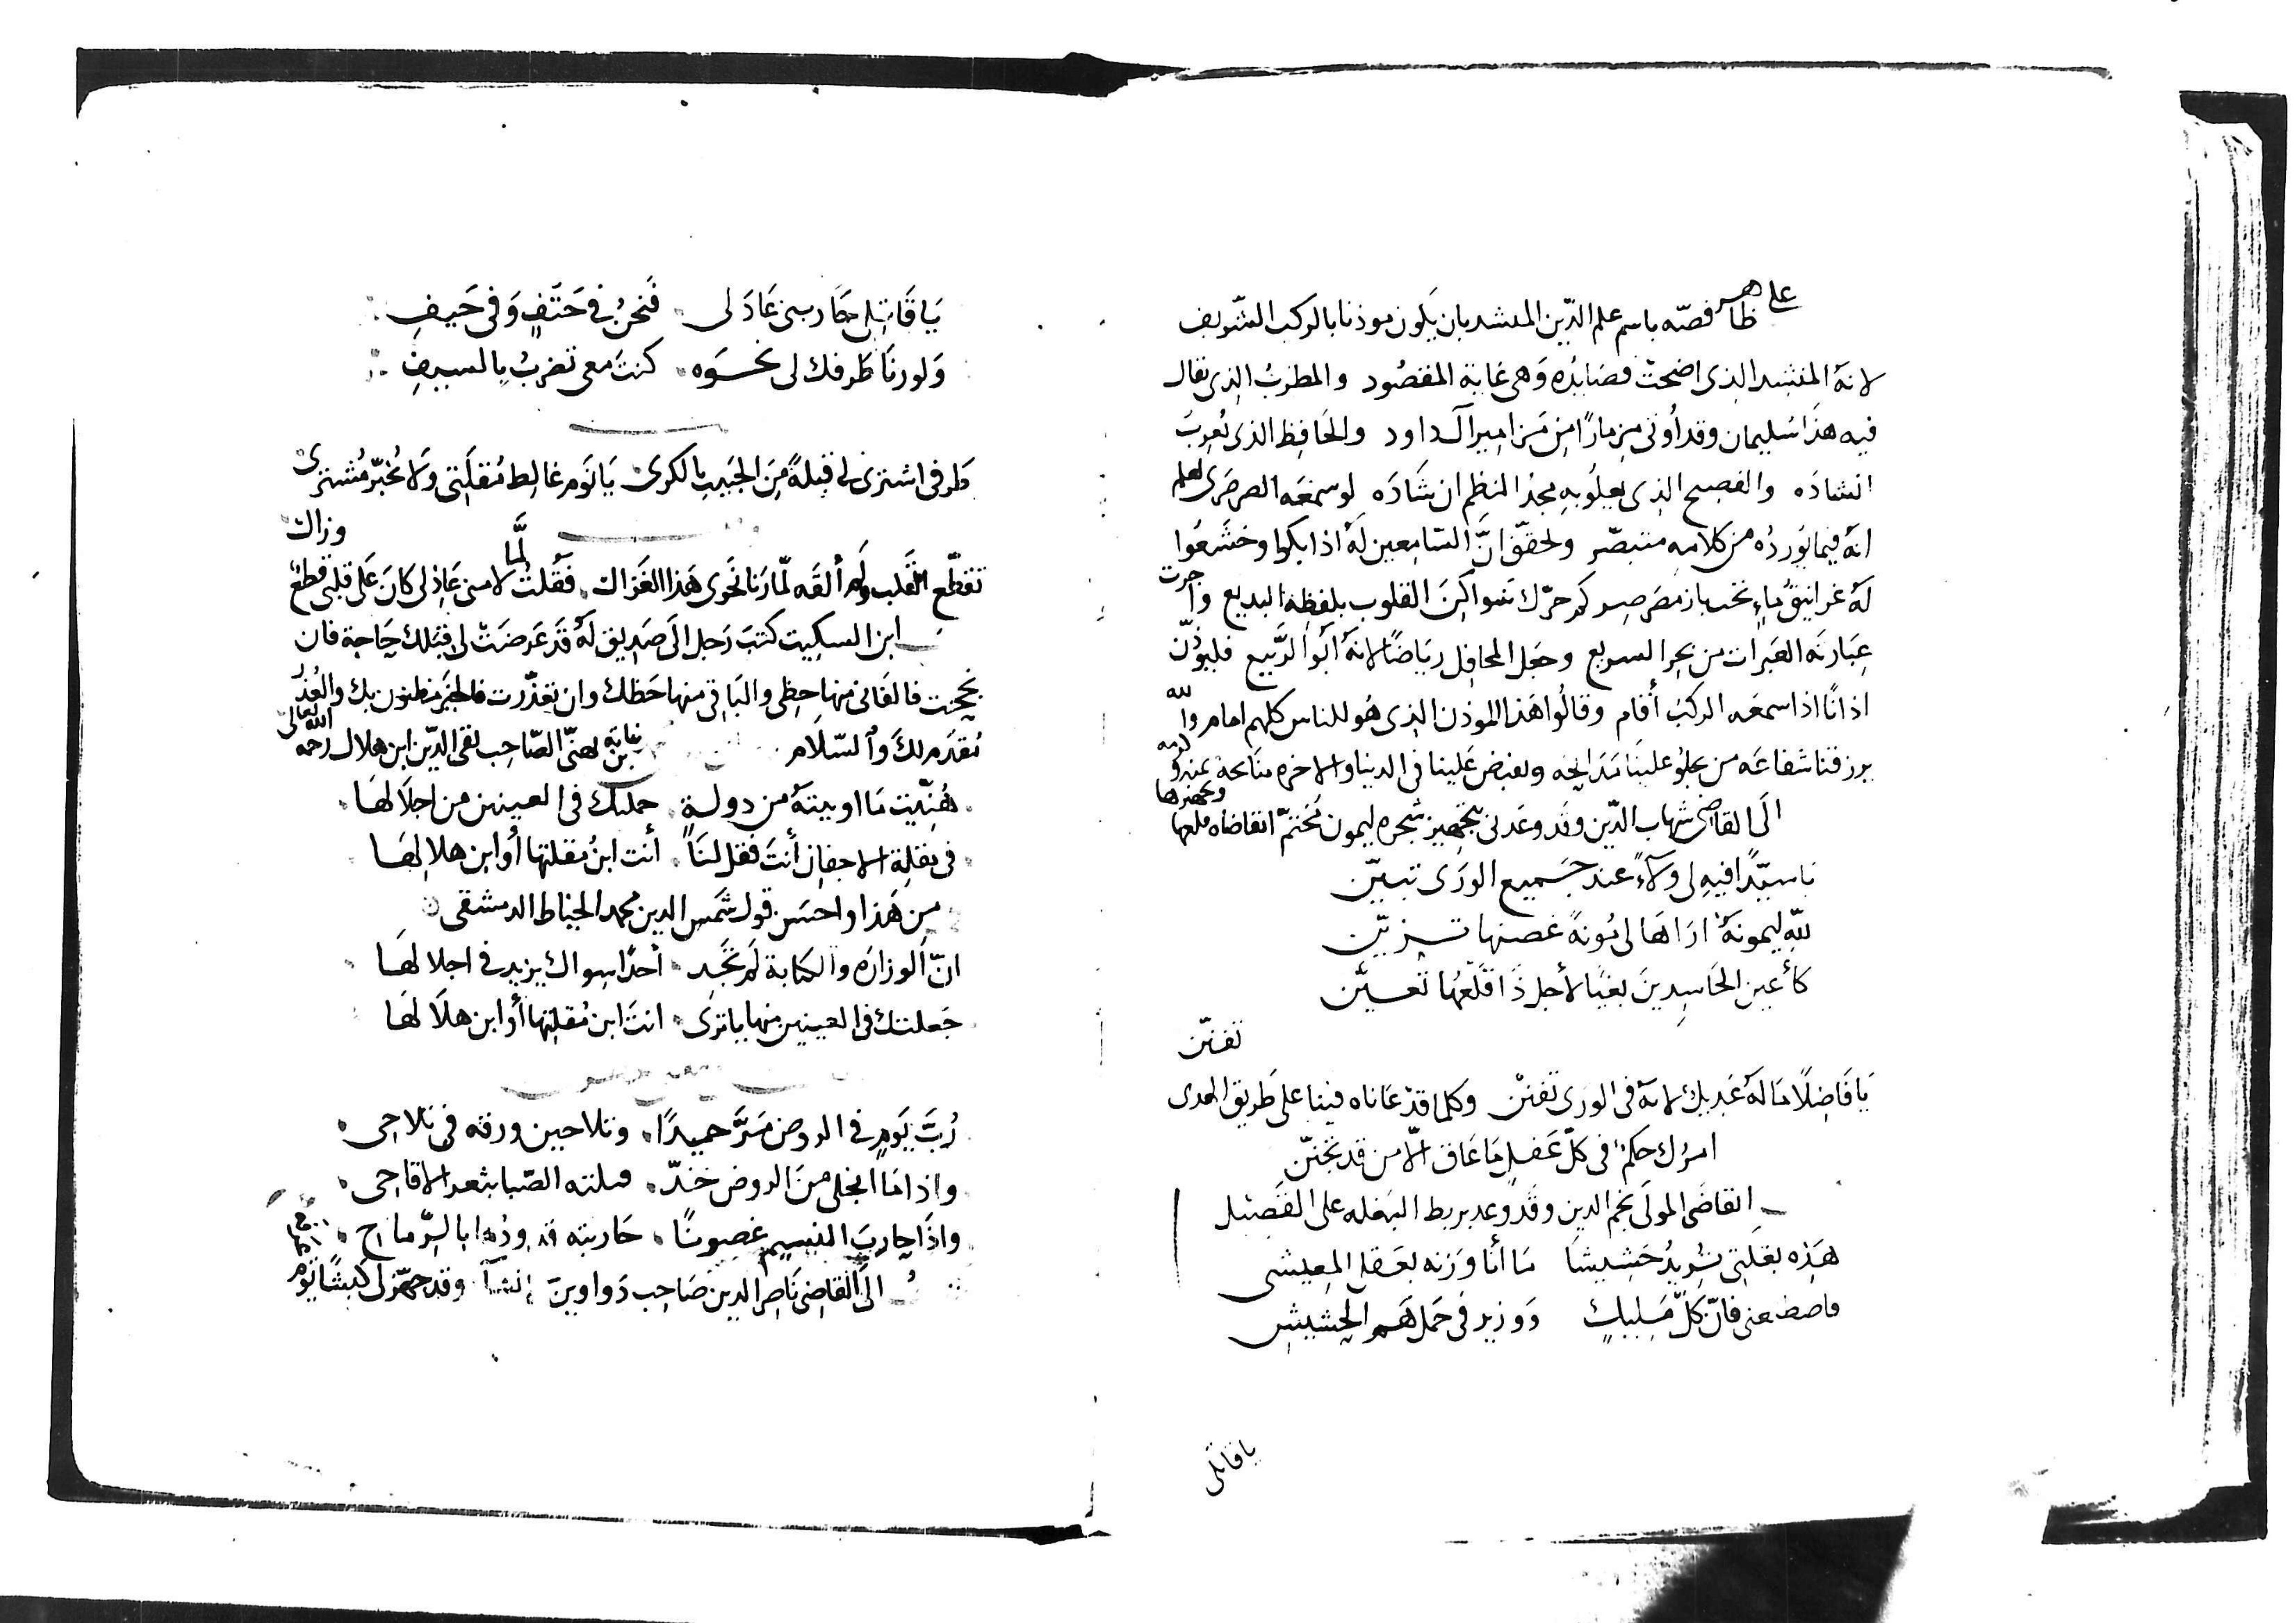 على ظاهر قصّه باسم علم الدّين المنشد بان يكون موذنا بالركب الشّريف
لانهُ المنشد الذى اضحت قصَايدُه وَهى غاية المقصُود والمطربُ الذى يقال
فيه هذا سُليمان وقد أُوتى مِزمارًا مِن مَزامير آل داود والحَافِظ الذى يُعربُ
انشادَه والفصيح الذى يعلُو به مجد النظم ان شَادَه لو سمعَه الصرصَرى لعلم
انهُ فيما يُوردُه من كلامه متبصّر ولحقّق انَّ السّامعين لهُ اذا بكوا وخشَعُوا
لهُ غرانيقُ ماءٍ تحت باز مصَرصِر كم حرّك سَواكنَ القلوب بلفظِه البديع وأجرت
عِبَارته العَبَرات من بحرِ السريع وجَعل المحافِل ريَاضًا لانهُ ابُوا الرَّبيع فليؤذّن
اذانًا اذا سمعَه الركبُ أقام وقالُوا هَذا الموذن الذى هُو للناس كلهم امام والله
يرزقنا شفاعَه من يجلُو علينا مدَايحَه ويفيض عَلينا فى الدنيا والاخره منَايحه بمنه وكرمه
الَى القاضى شهاب الدّين وقد وعَدنى بتجهيز شجره ليمون مُختمّ اتقاضاه وتجهيزها
يا سيّدًا فيهِ لى ولآءٌ عند جَميع الورَى تبيّن
للهِ ليمونهٌ ارَاهَا لى مُونهً غصنها تزيّن
كأعين الحَاسِدينَ بغيًا لأجل ذَا قَلعُها تعيّن
تفنّن
يَا فَاضِلًا مَا لهُ غَديك لانهُ فى الورَى تفنّن وكلما قدْ عَاناه فينا على طَريق الهدى
امرُك حكمٌ فى كلّ عَقلٍ مَا عَاق الّا من قد تجنّن
القاضى المولى نجم الدين وقد وعد بربط البَغله على القَصيل
هَذِه بغلَتى تُريدُ حَشيشا مَا أنَا وَزنه بعَقل المعيشى
فاصطنعنى فانّ كلَّ مَليكٍ دَووزير فى حَمل هَم الحشيش
يا قاتلى
يَا قَاتِلى جَار بنى عَاذلى فَنحنُ فى حَتفٍ وَفى حَيفِ
وَلو رنَا طَرفك لى نحوَه كنتَ معى تضربُ بِالسيفِ
طَرفى اشترى لى قبلةً مِنَ الحَبيب بالكرى يَا نَوم غالِط مُقلَتى وَلا تُخبّر مُشترى
وزاك
تقطّع القَلب وَلم ألقَه لمّا رَنا نحوى هَذا الغَزال فقلتُ لمَّا لامنى عَاذلى كانَ عَلى قلبى قطعُ
ابن السكيت كتبَ رَجل الَى صَديق لَهُ قَد عَرضَتْ لى قبَلك حَاجة فان
نجحت فالفَانى منها حظى والبَاقى منها حَظك وان تعذّرت فالخيَر مظنون بك والعُذرُ
مُقدّم لكَ وَالسّلام ابن نباته يهنّى الصّاحب تقى الدّين ابن هلال رحمه الله تعالى
هُنّيت مَا اوتيتهُ من دولةٍ حملتك فى العينين من اجلَالهَا
فى مقلة الاجفان أنتَ فقل لنَا أنت ابنُ مُقلتها أو ابن هلالِهَا
مِن هَذا واحسَن قول شمس الدين محمد الخياط الدمشقى
انّ الوزارَه والكتابة لَم تجَد أحدًا سِواك يزيد فى اجلالهَا
جَعلتك فى العينين منها يا ترَى انتَ ابن مُقلتِها أو ابن هلَالهَا
رُبَّ يَومٍ فى الروضِ مَرَّ حميدًا وتلاحين ورقه فى تلاحى
واذا مَا انجلى منَ الروضِ خدّ قبلته الصّبا بثغر الاقاحى
واذَا حاربَ النسيم غصونًا حَاربته قدودُها بالرّماح
الَى القاضِى نَاصر الدين صَاحِب دَواوين انشا وقد جهّز لى كبشًا